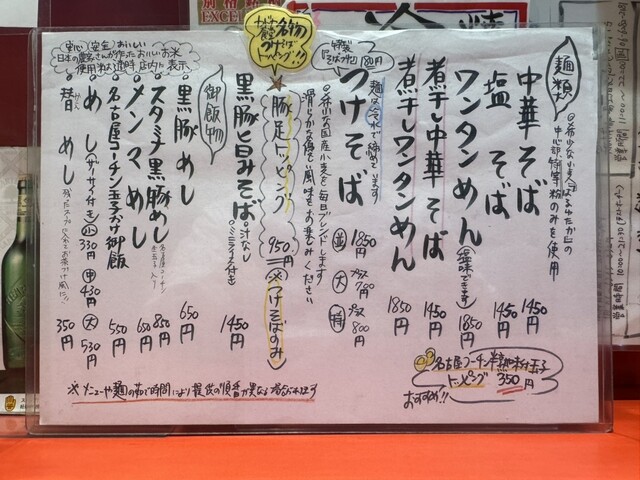 麺類
◎希少な小麦「はるゆたか」の
中心部特等粉のみを使用
中華そば 1450円
塩そば 1450円
ワンタンめん(塩味できます) 1850円
煮干し中華そば 1450円
煮干しワンタンめん 1850円
つけそば
麺は冷水で締めています
◎希少な国産小麦を毎日ブレンドします
滑らかな喉ごし風味をお楽しみください
並 1850円
大 プラス700円
特 プラス800円
中華そば食堂名物
つけそば
トッピング!!
豚足トッピング 950円 ※つけそばのみ
黒豚旨みそば 1450円
御飯物
安心(安全)おいしい
日本の農家さんが作ったおいしいお米
使用
店内に表示
黒豚めし 650円
スタミナ黒豚めし 850円
メンマめし 650円
名古屋コーチン玉子かけ御飯 550円
めし(ザーサイ付き) 小330円 中430円 大530円
替めし 350円
名古屋コーチン半熟味付玉子
トッピング 350円
おすすめ!!
※メニューや麺の茹で時間により提供の順番が異なる場合があります